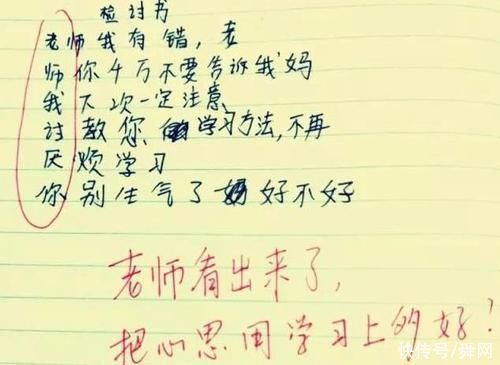 检讨书
老师我有错,老
师你千万不要告诉我妈
我下次一定注意
讨教您学习方法,不再
厌烦学习
你别生气了好不好
老师看出来了,
把心思用学习上的好!
快传号/舜网